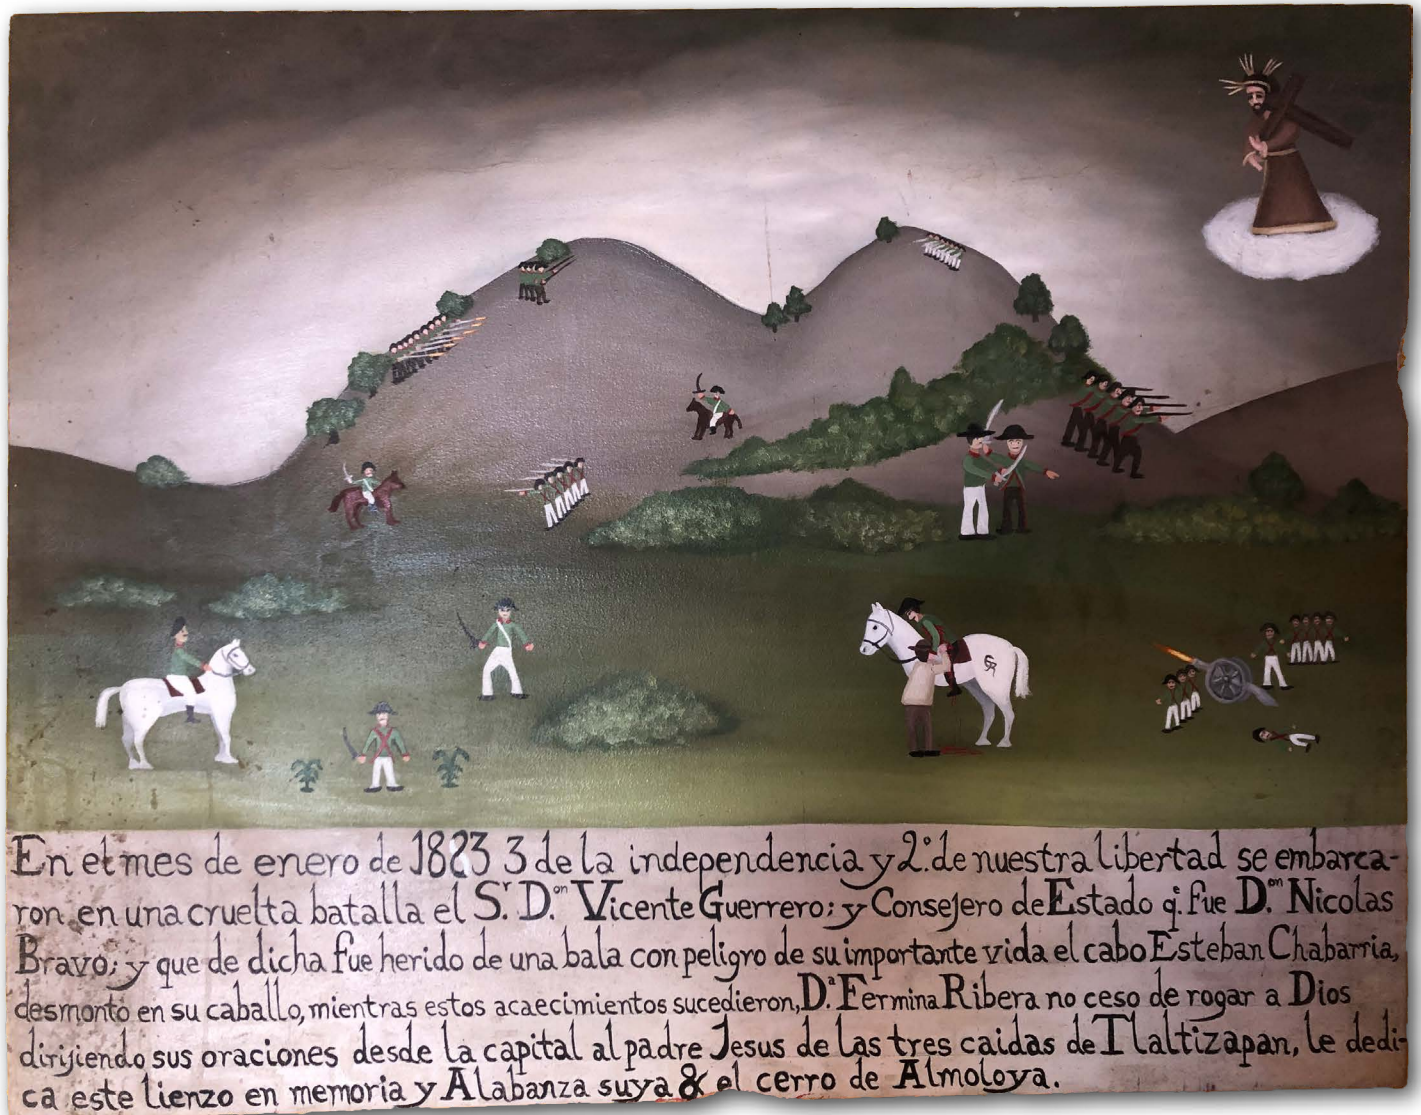 En el mes de enero de 1823 3 de la independencia y 2.º de nuestra libertad se embarca-
ron en una cruelta batalla el S.r D.on Vicente Guerrero; y Consejero de Estado q.e fue D.on Nicolas
Bravo; y que de dicha fue herido de una bala con peligro de su importante vida el cabo Esteban Chabarria,
desmonto en su caballo, mientras estos acaecimientos sucedieron, D.ª Fermina Ribera no ceso de rogar a Dios
dirijiendo sus oraciones desde la capital al padre Jesus de las tres caidas de Tlaltizapan, le dedi-
ca este lienzo en memoria y Alabanza suya & el cerro de Almoloya.